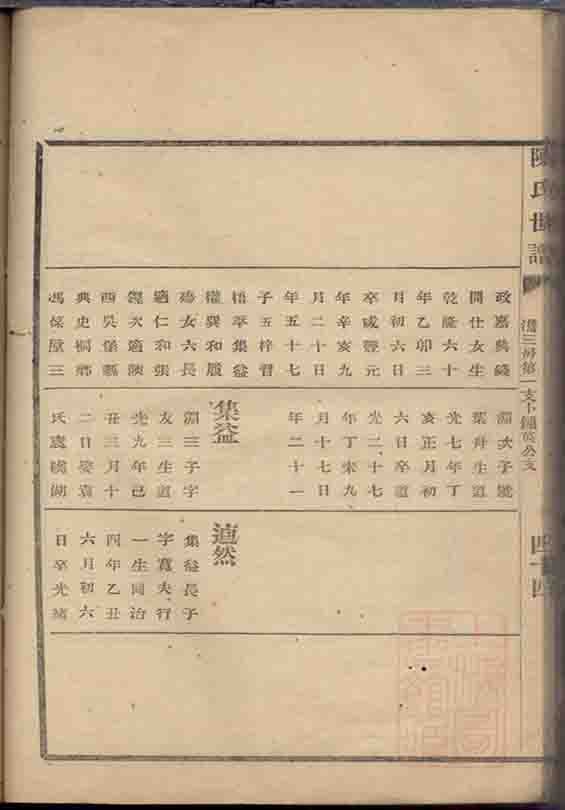 陳氏世譜
四十四
政嘉興錢
開仕女生
乾隆六十
年乙卯三
月初六日
卒咸豐元
年辛亥九
月二十日
年五十七
子五梓晉
梧萃集益
權巽和履
女六長
適仁和張
次適陳
吳
典史桐鄉
馮保三
淵次子號
葉舟生道
光七年丁
亥正月初
六日卒道
光二十七
年丁未九
月十七日
年二十一
集益
淵三子字
友三生道
光九年己
丑三月十
二日娶袁
氏
適然
集益長子
字寬夫行
一生同治
四年乙丑
六月初六
日卒光緒